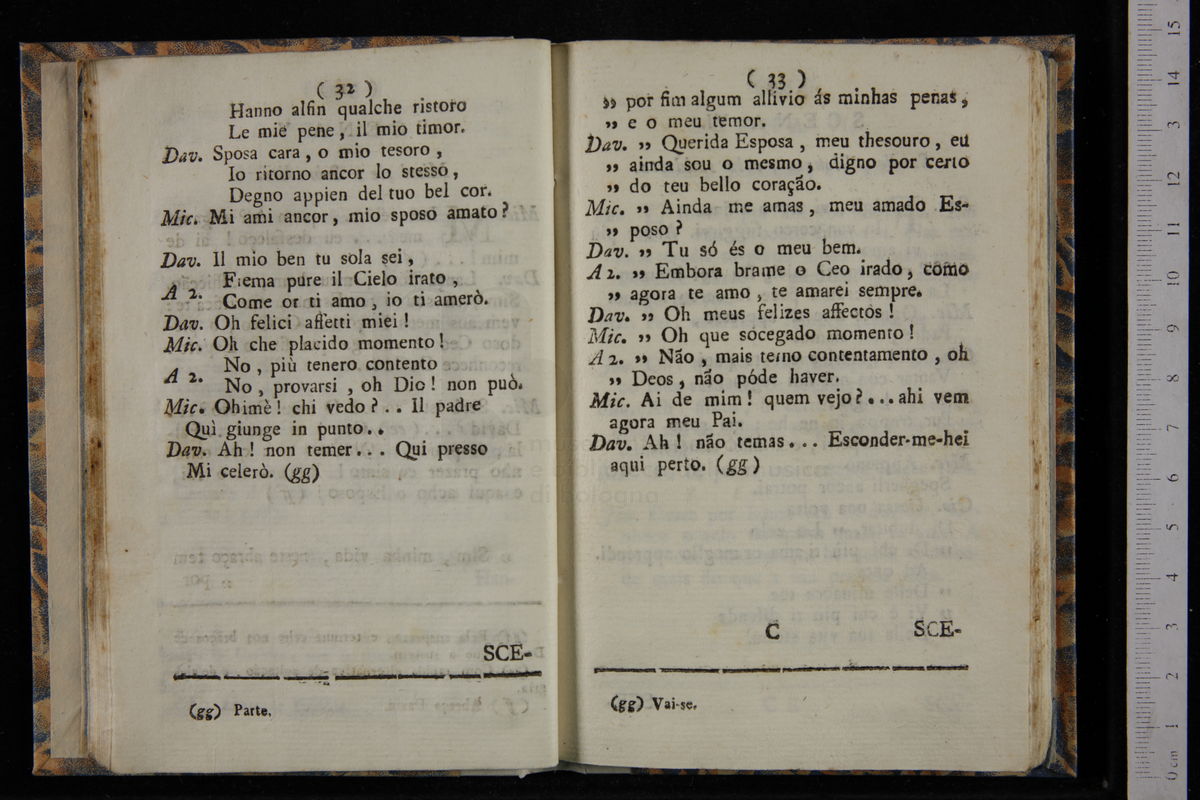 ( 32 )
Hanno alfin qualche ristoro
Le mie pene , il mio timor.
Dav. Sposa cara , o mio tesoro ,
Io ritorno ancor lo stesso ,
Degno appien del tuo bel cor.
Mic. Mi ami ancor , mio sposo amato ?
Dav. Il mio ben tu sola sei ,
A 2. Frema pure il Cielo irato ,
Come or ti amo , io ti amerò.
Dav. Oh felici affetti miei !
Mic. Oh che placido momento !
A 2. No , più tenero contento
No , provarsi , oh Dio ! non può.
Mic. Ohimè ! chi vedo ? . . Il padre
Quì giunge in punto . .
Dav. Ah ! non temer . . . Qui presso
Mi celerò. (gg)
SCE-
(gg) Parte.
( 33 )
„ por fim algum allivio ás minhas penas ,
„ e o meu temor.
Dav. „ Querida Esposa , meu thesouro , eu
„ ainda sou o mesmo , digno por certo
„ do teu bello coração.
Mic. „ Ainda me amas , meu amado Es-
„ poso ?
Dav. „ Tu só és o meu bem.
A 2. „ Embora brame o Ceo irado , como
„ agora te amo , te amarei sempre.
Dav. „ Oh meus felizes affectos !
Mic. „ Oh que socegado momento !
A 2. „ Não , mais terno contentamento , oh
„ Deos , não póde haver.
Mic. Ai de mim ! quem vejo ? . . . ahi vem
agora meu Pai.
Dav. Ah ! não temas . . . Esconder-me-hei
aqui perto. (gg)
C SCE-
(gg) Vai-se.
0 cm 1 2 3 4 5 6 7 8 9 10 11 12 13 14 15